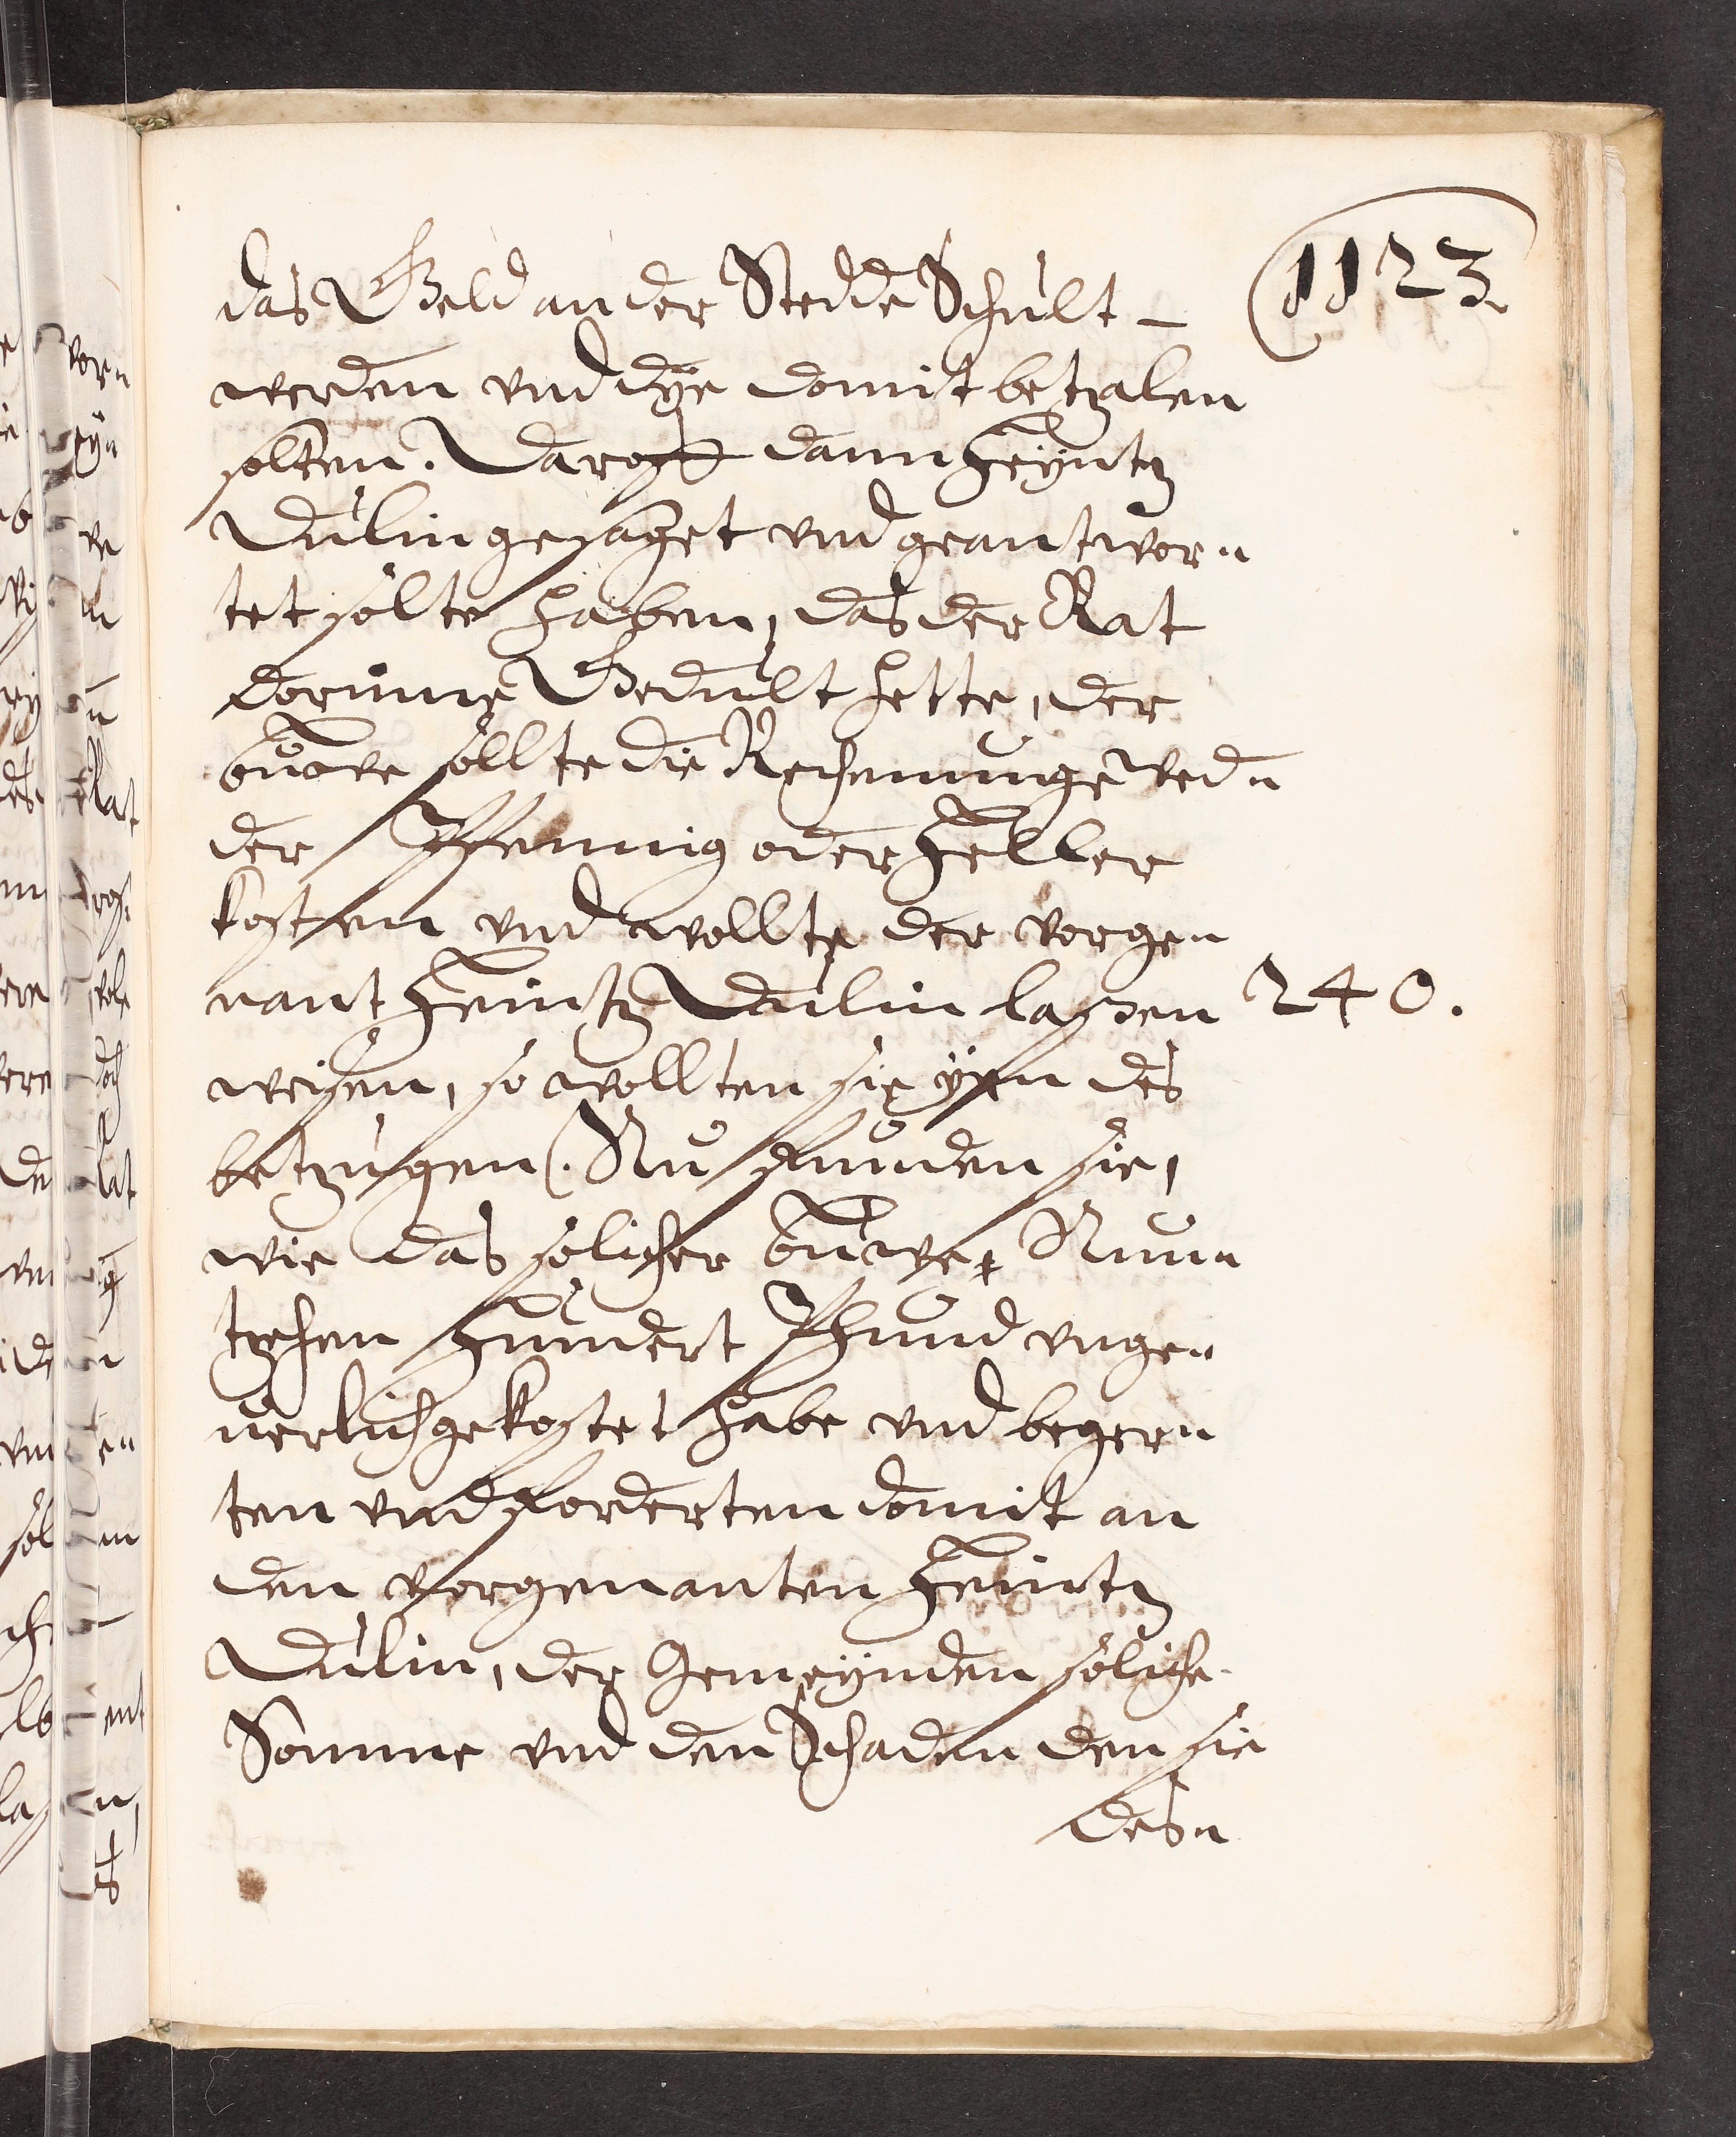 1123
das Geld an der Stedde Schult -
werden vnd dÿe domit betzalen
solten. Daroff dann Heÿntz
Dulin gesaget vnd geantwor-
tet solte haben, das der Rat
dorume Gedult hette, der
buwe sollte die Rechenunge wed-
der Pfennig oder Heller
kosten vnd wollte der vorge-
nant Heintz Dulin lassen 240.
weisen, so wollten sie ÿm des
betzugen. Nu funden sie,
wie das solicher buwe Nun-
tzehen Hundert Phund vnge-
uerlich gekostet habe vnd beger-
ten vnd forderten domit an
den vorgenanten Heintz
Dulin, der Gemeÿnden soliche
Somme vnd den Schaden den sie
des-